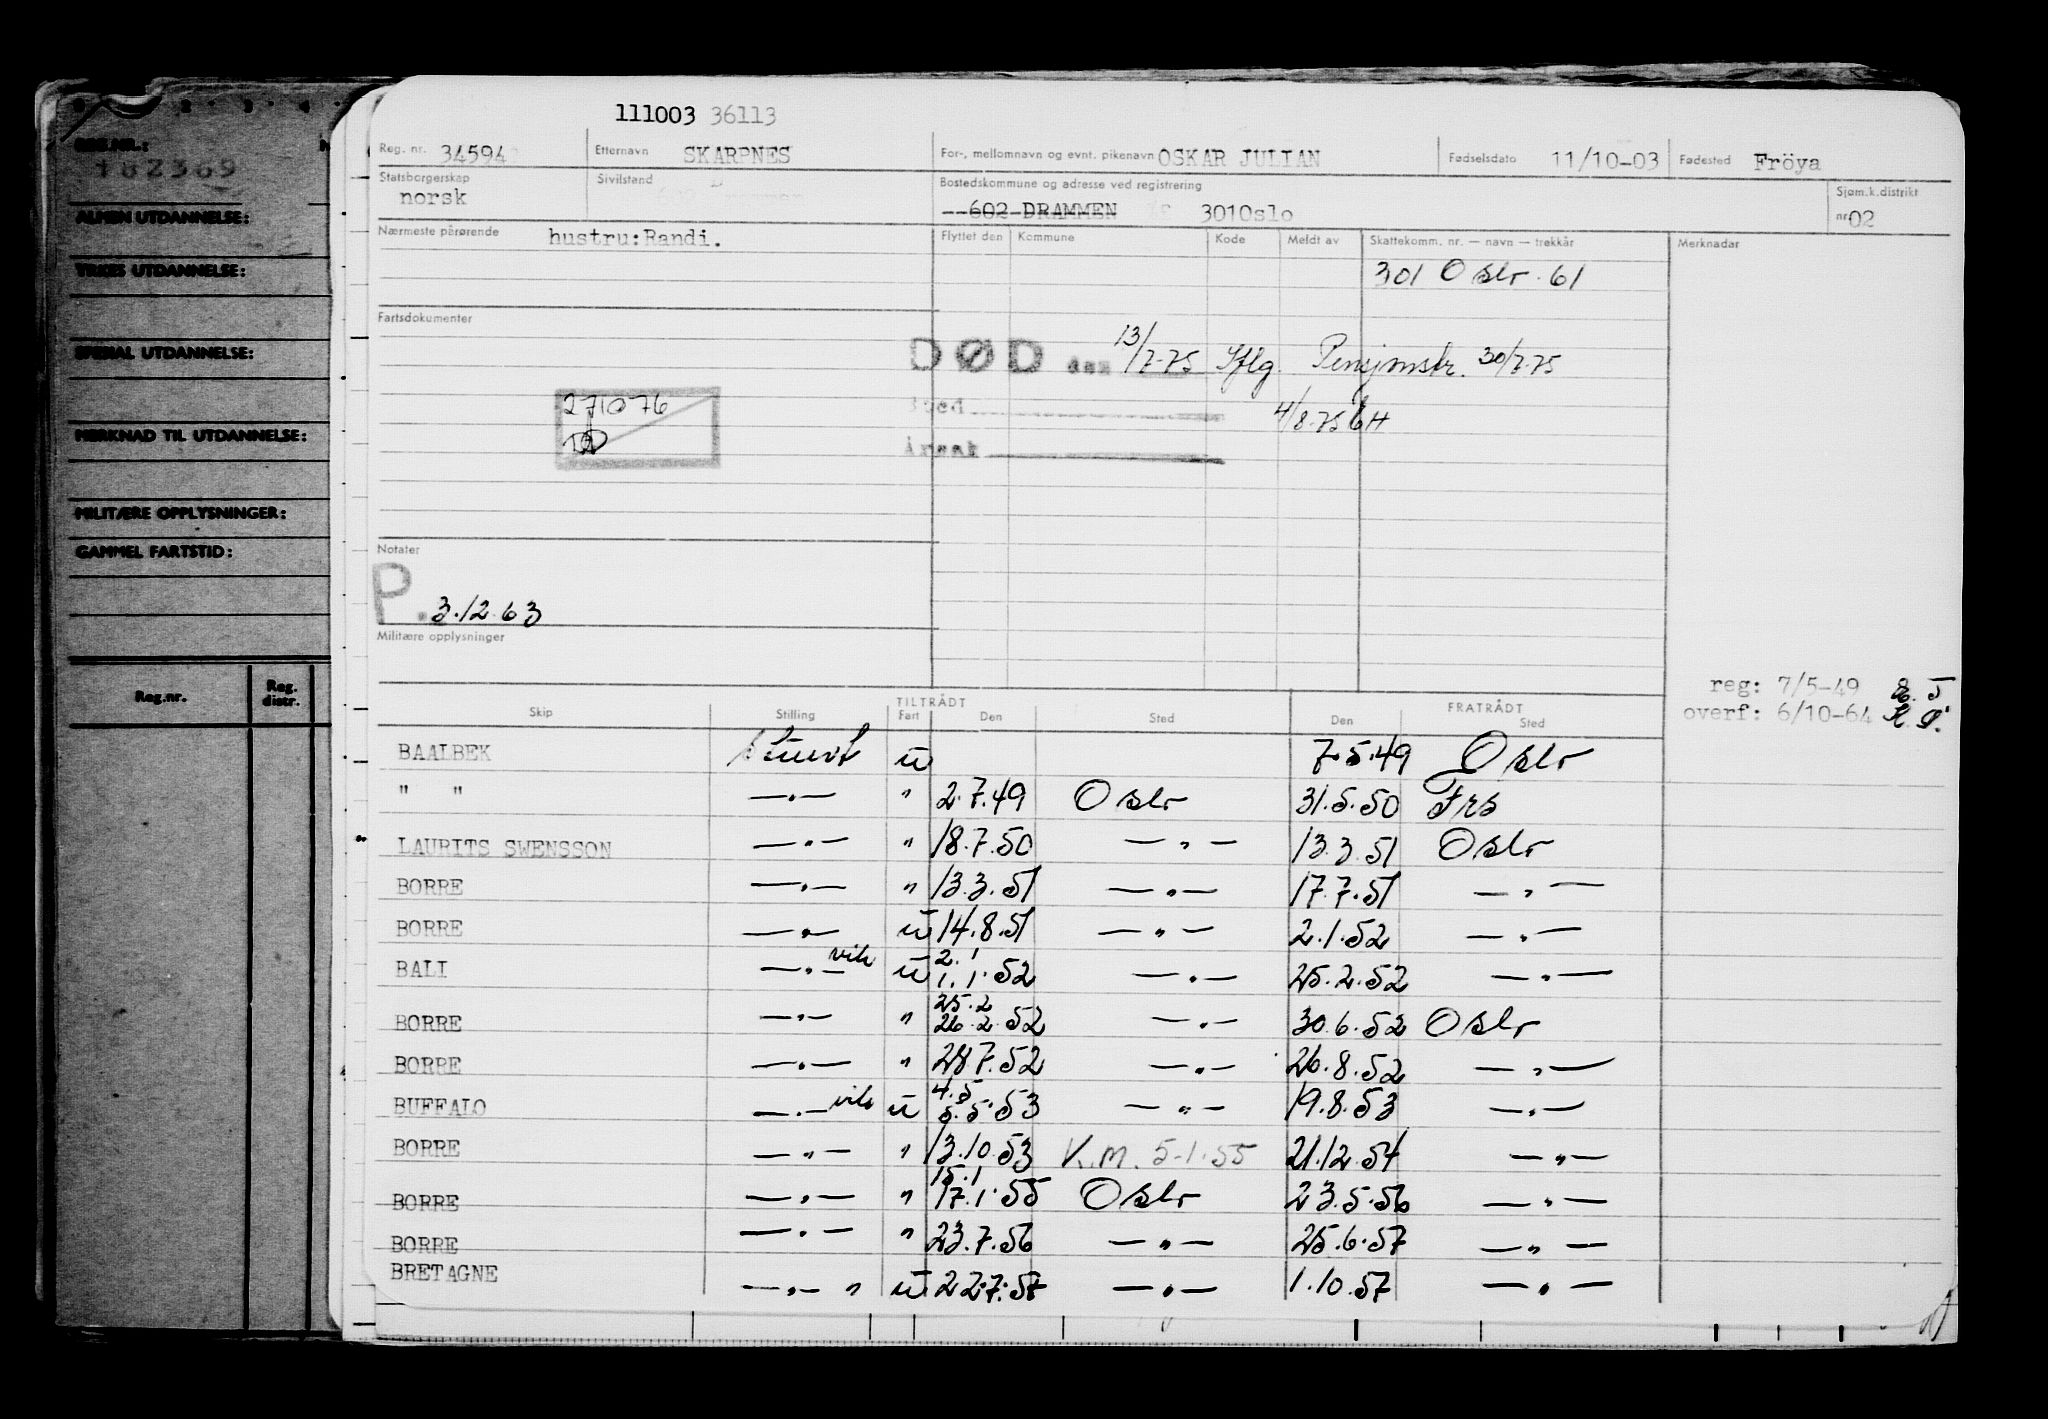 111003 36113
Reg. nr. 34594 Etternavn SKARPNES For-, mellomnavn og evnt. pikenavn OSKAR JULIAN Fødselsdato 11/10-03 Fødested Fröya
Statsborgerskap norsk Sivilstand Bostedskommune og adresse ved registrering 602 DRAMMEN 301Oslo Sjøm.k.distrikt nr 02
Nærmeste pårørende hustru:Randi. Flyttet den Kommune Kode Meldt av Skattekomm. nr. — navn — trekkår Merknader
301 Oslo 61
Fartsdokumenter
DØD den 13/7-75 Iflg. Pensjonstr. 30/7-75
Sted 4/8-75
Årsak
271076
Notater
P. 3.12.63
Militære opplysninger
reg: 7/5-49
overf: 6/10-64
Skip Stilling TILTRÅDT Fart Den Sted FRATRÅDT Den Sted
BAALBEK Stuert u 7.5.49 Oslo
" " —"— " 2.7.49 Oslo 31.5.50 Frs
LAURITS SWENSSON —"— " 18.7.50 —"— 13.3.51 Oslo
BORRE —"— " 13.3.51 —"— 17.7.51 —"—
BORRE —"— u 14.8.51 —"— 2.1.52 —"—
BALI —"— vik u 2.1 1.1.52 —"— 25.2.52 —"—
BORRE —"— " 25.2 26.2.52 —"— 30.6.52 Oslo
BORRE —"— " 28.7.52 —"— 26.8.52 —"—
BUFFALO —"— vik u 4.5 5.5.53 —"— 19.8.53 —"—
BORRE —"— " 13.10.53 K.M. 5-1.55 21.12.54 —"—
BORRE —"— " 15.1 17.1.55 Oslo 23.5.56 —"—
BORRE —"— " 23.7.56 —"— 25.6.57 —"—
BRETAGNE —"— " u 22.7.57 —"— 1.10.57 —"—
REG.NR.:
182369
ALMEN UTDANNELSE:
YRKES UTDANNELSE:
SPESIAL UTDANNELSE:
MERKNAD TIL UTDANNELSE:
MILITÆRE OPPLYSNINGER:
GAMMEL FARTSTID:
Reg.nr. Reg. distr.